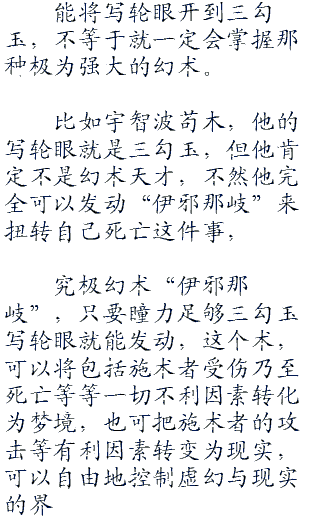 能将写轮眼开到三勾
玉，不等于就一定会掌握那
种极为强大的幻术。
比如宇智波苟木，他的
写轮眼就是三勾玉，但他肯
定不是幻术天才，不然他完
全可以发动“伊邪那岐”来
扭转自己死亡这件事，
究极幻术“伊邪那
岐”，只要瞳力足够三勾玉
写轮眼就能发动，这个术，
可以将包括施术者受伤乃至
死亡等等一切不利因素转化
为梦境，也可把施术者的攻
击等有利因素转变为现实，
可以自由地控制虚幻与现实
的界